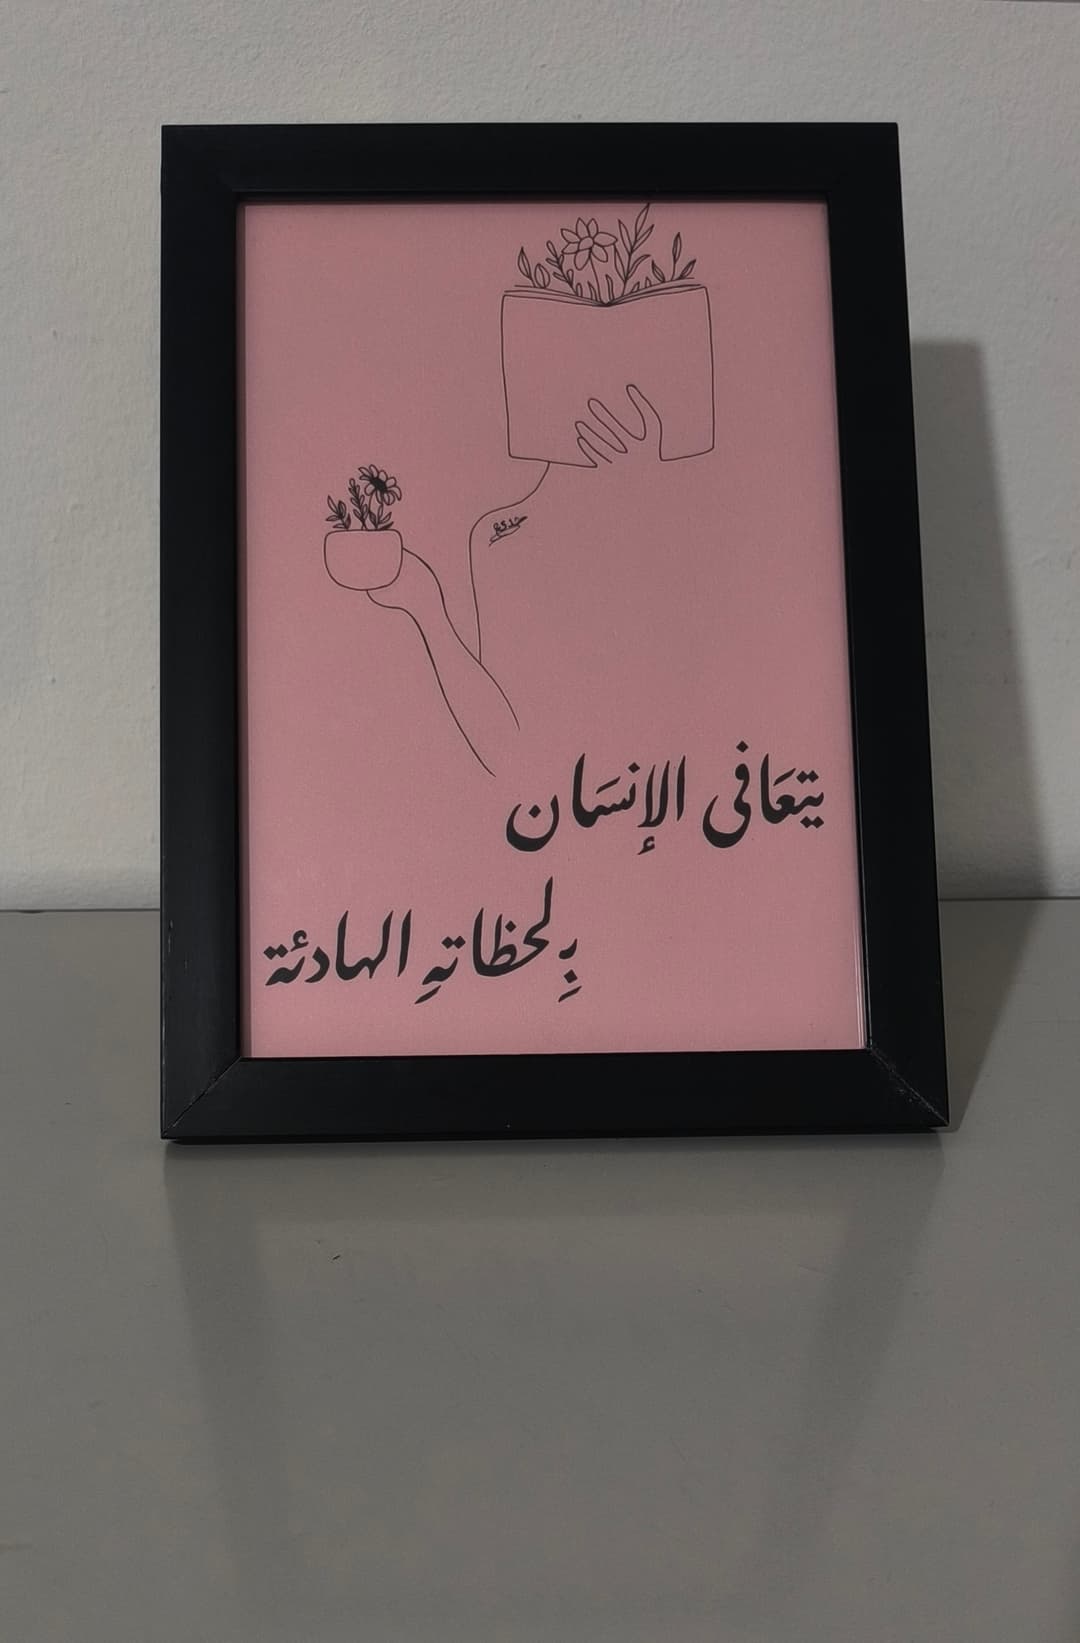 يتعَافى الإنسَان
بِلحظاتهِ الهادئة